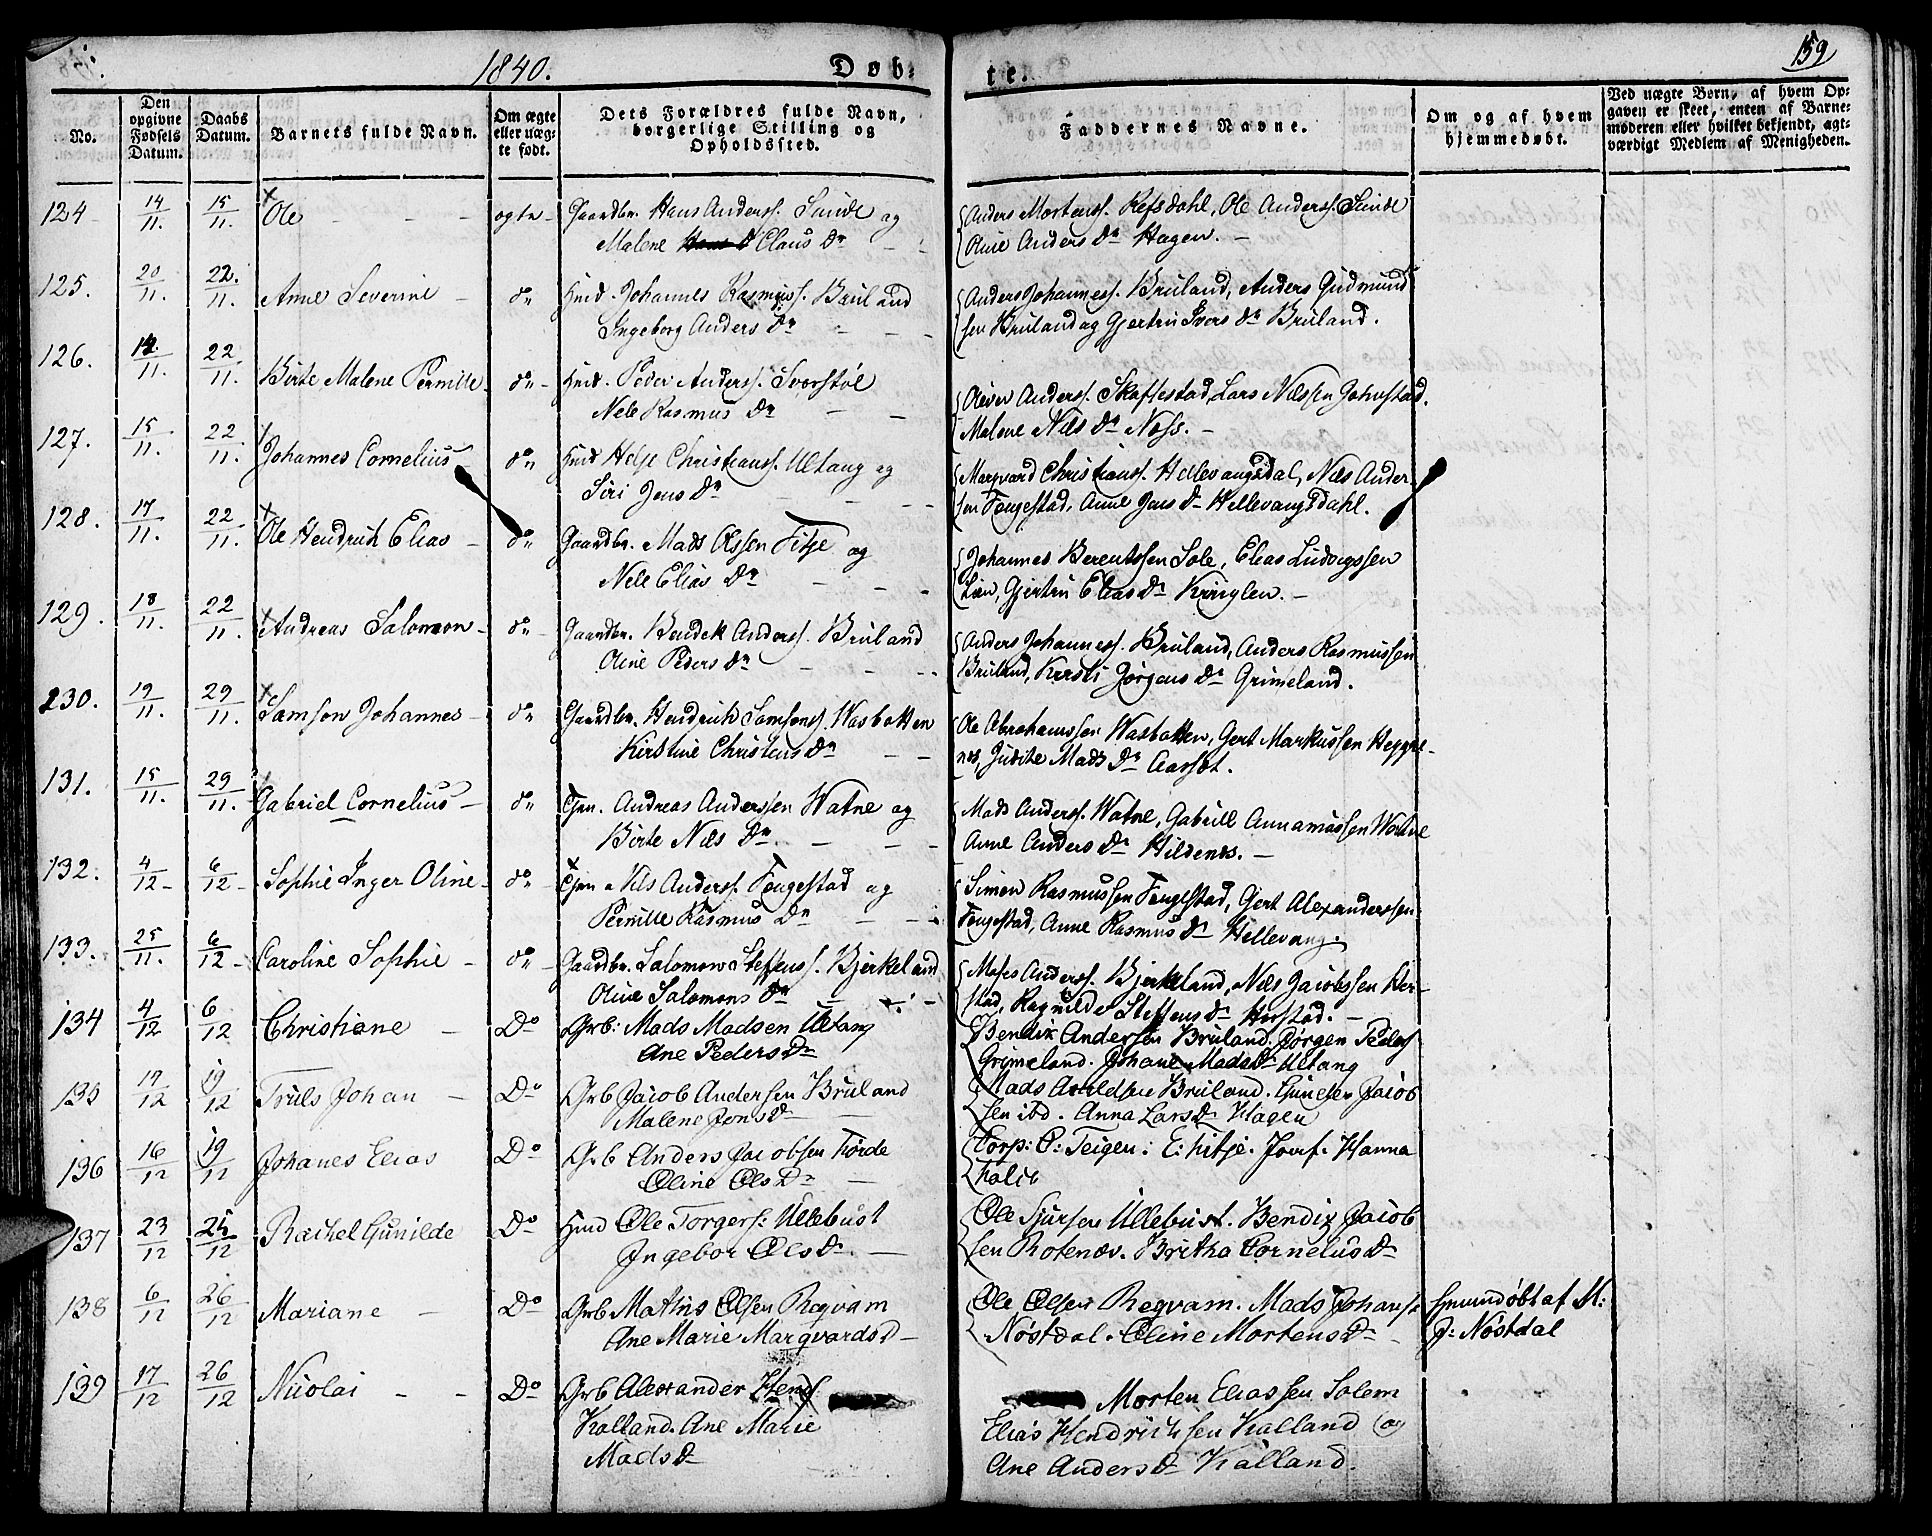 1840. Døb-
te. 159
No.
Den opgivne Fødsels Datum.
Daabs Datum.
Barnets fulde Navn.
Om ægte eller uæg-te født.
Dets Forældres fulde Navn, borgerlige Stilling og Opholdssted.
Faddernes Navne.
Om og af hvem hjemmedøbt.
Ved uægte Børn, af hvem Op-gaven er skeet, enten af Barne-moderen eller hvilket bekjendt, agt-værdigt Medlem af Menigheden.
124 14/11. 15/11. Ole ægte Gaardbr. Hans Anderss. Sunde og
Malene Claus Dr
Anders Mortenss. Refsdahl, Ole Anderss. Sunde
Oline Anders Dr Hagen.
125. 20/11. 22./11. Anne Severine do Huusm. Johannes Rasmuss. Bruland
Ingeborg Anders Dr
Anders Johanness. Bruland, Anders Gudmund
sen Bruland og Gjertru Ivers Dr Bruland.
126. 22/11. Birte Malene Pernille do Peder Anderss. Svorstøl
Nele Rasmus Dr
Oliver Anderss. Skaftestad, Lars Nilssen Johnstad.
Malene Nils Dr Noss.
127. 15/11. 22/11. Johannes Cornelius do Helje Christianss. Ultang og
Siri Jens Dr
Marqvard Christianss. Hellevangsdal, Nils Ander-
sen Fengestad, Anne Jens Dr Hellevangsdahl.
128. 17/11. 22/11. Ole Hendrich Elias do Gaardbr. Mads Olssen Fitje og
Nele Elias Dr
Johannes Berentssen Sole, Elias Ludvigssen
Lien, Gjertru Elias Dr Kringlen.
129. 18/11. 22/11. Andreas Salomon do Gaardbr. Bendek Anderss. Bruland
Oline Peders Dr
Anders Johanness. Bruland, Anders Rasmussen
Bruland, Kersti Jørgens Dr Grimeland.
130. 19/11. 29/11. Samson Johannes do Gaardbr. Hendrich Samsonss. Wasbotten
Kirstine Christens Dr
Ole Abrahamssen Wasbotten, Gert Markussen Hegge-
nes, Judite Mads Dr Aarset.
131. 15/11. 29/11. Gabriel Cornelius do Tjen. Andreas Anderssen Watne og
Birte Nils Dr
Mads Anderss. Watne, Gabriell Annamiassen Watne
Anne Anders Dr Hildenes.
132. 4/12 6/12 Sophie Inger Oline do Tjen Nils Anderss. Fengestad og
Pernille Rasmus Dr
Simon Rasmussen Fengestad, Gert Alexanderssen
Fengestad, Anne Rasmus Dr Hellevang.
133. 25/11. 6/12 Caroline Sophie do Gaardbr. Salomon Steffenss. Bjerkeland
Oline Salomons Dr
Moses Anderss. Bjerkeland, Nils Jacobssen Her-
stad, Ragnilde Steffens Dr Herstad.
134 4/12 6/12 Christiane Do Grb: Mads Madsen Ultang
Ane Peders Dr
Bendix Andersen Bruland. Jørgen Peders
Grimeland. Johane Mads Dr Ultang
135 19/12 19/12 Truls Johan Do Grb Jacob Andersen Bruland
Malene Jens Dr
Mads Bruland. Gunder Jacob
sen ibd. Anna Lars Dr Hagen
136 16/12 19/12 Johanes Elias Do Grb Anders Jacobsen Førde
Oline Ols Dr
Corp: O: Teigen: E: Fitje. Jomf. Hanna
Falch
137 23/12 25/12 Rachel Gunilde Do Huusm Ole Torgers: Ullebust
Ingebor Ols Dr
Ole Sjursen Ullebust. Bendix Jacob
sen Rotenæs. Britha Cornelius Dr
138 6/12 26/12 Mariane Do Grb Matins Olsen Reqvam
Ane Marie Marqvards D
Ole Olsen Reqvam. Mads Johans.
Nøstdal. Oline Mortens Dr
Hiemdøbt af M:
J: Nøstdal
139 17/12 26/12 Nicolai Do Grb Alexander Hends
Kalland. Ane Marie
Mads Dr
Morten Eliassen Solem
Elias Hendrichsen Kalland og
Ane Anders Dr Kalland.